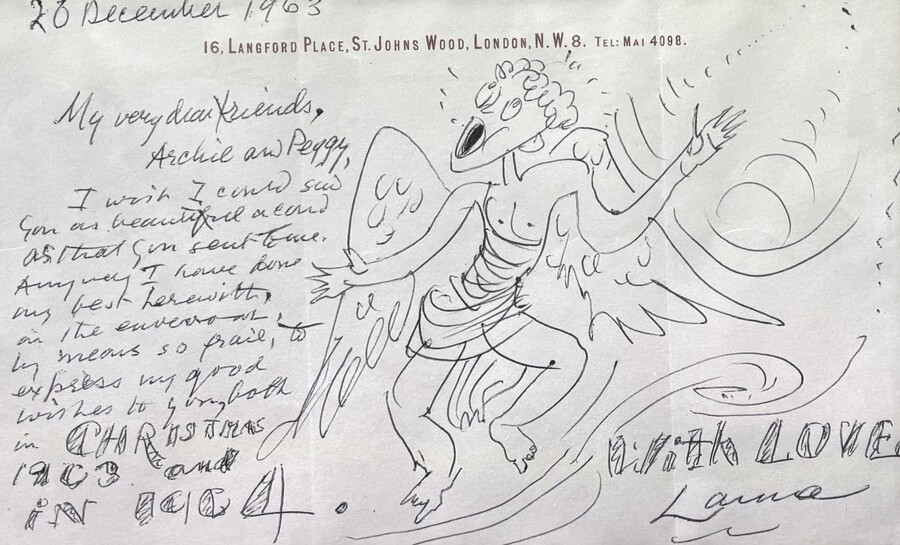 20 December 1963
16, LANGFORD PLACE, ST. JOHNS WOOD, LONDON, N.W. 8. TEL: MAI 4098.
My very dear friends,
Archie and Peggy,
I wish I could send
you as beautiful a card
as that you sent to me.
Anyway I have done
my best herewith,
on the
by means so frail, to
express my good
wishes to you both
in CHRISTMAS
1963 and
in 1964.
With LOVE.
Laura